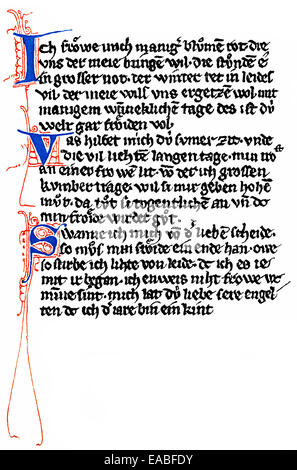 Ich frǒwe mich manigˢ blůmen rot die
vns der meie bringen wil. die stůnden e
in grosser not. der winter tet in leides
vil. der meie wils vns ergetzen wol. mit
manigem wunneklichen tage. des ist dú
welt gar frǒiden vol.
Was hilfet mich dú sumer zit. vnde
die vil liehten langen tage. min trost
an einer frǒwen lit. vō der ich grossen
kumber trage. wil si mir geben hohen
můt. da tůt si tugentlichen an. vn̄ dc
min frǒide wirdet gůt.
Swanne ich mich vō dˢ lieben scheide.
so můs min frǒide ein ende han. owe
so stirbe ich lihte von leide. dc ich es ie
mit ir began. ich enweis niht frǒwe wc
minne sint. mich lat dú liebe sere engel
ten dc ich dˢ iare bin ein kint